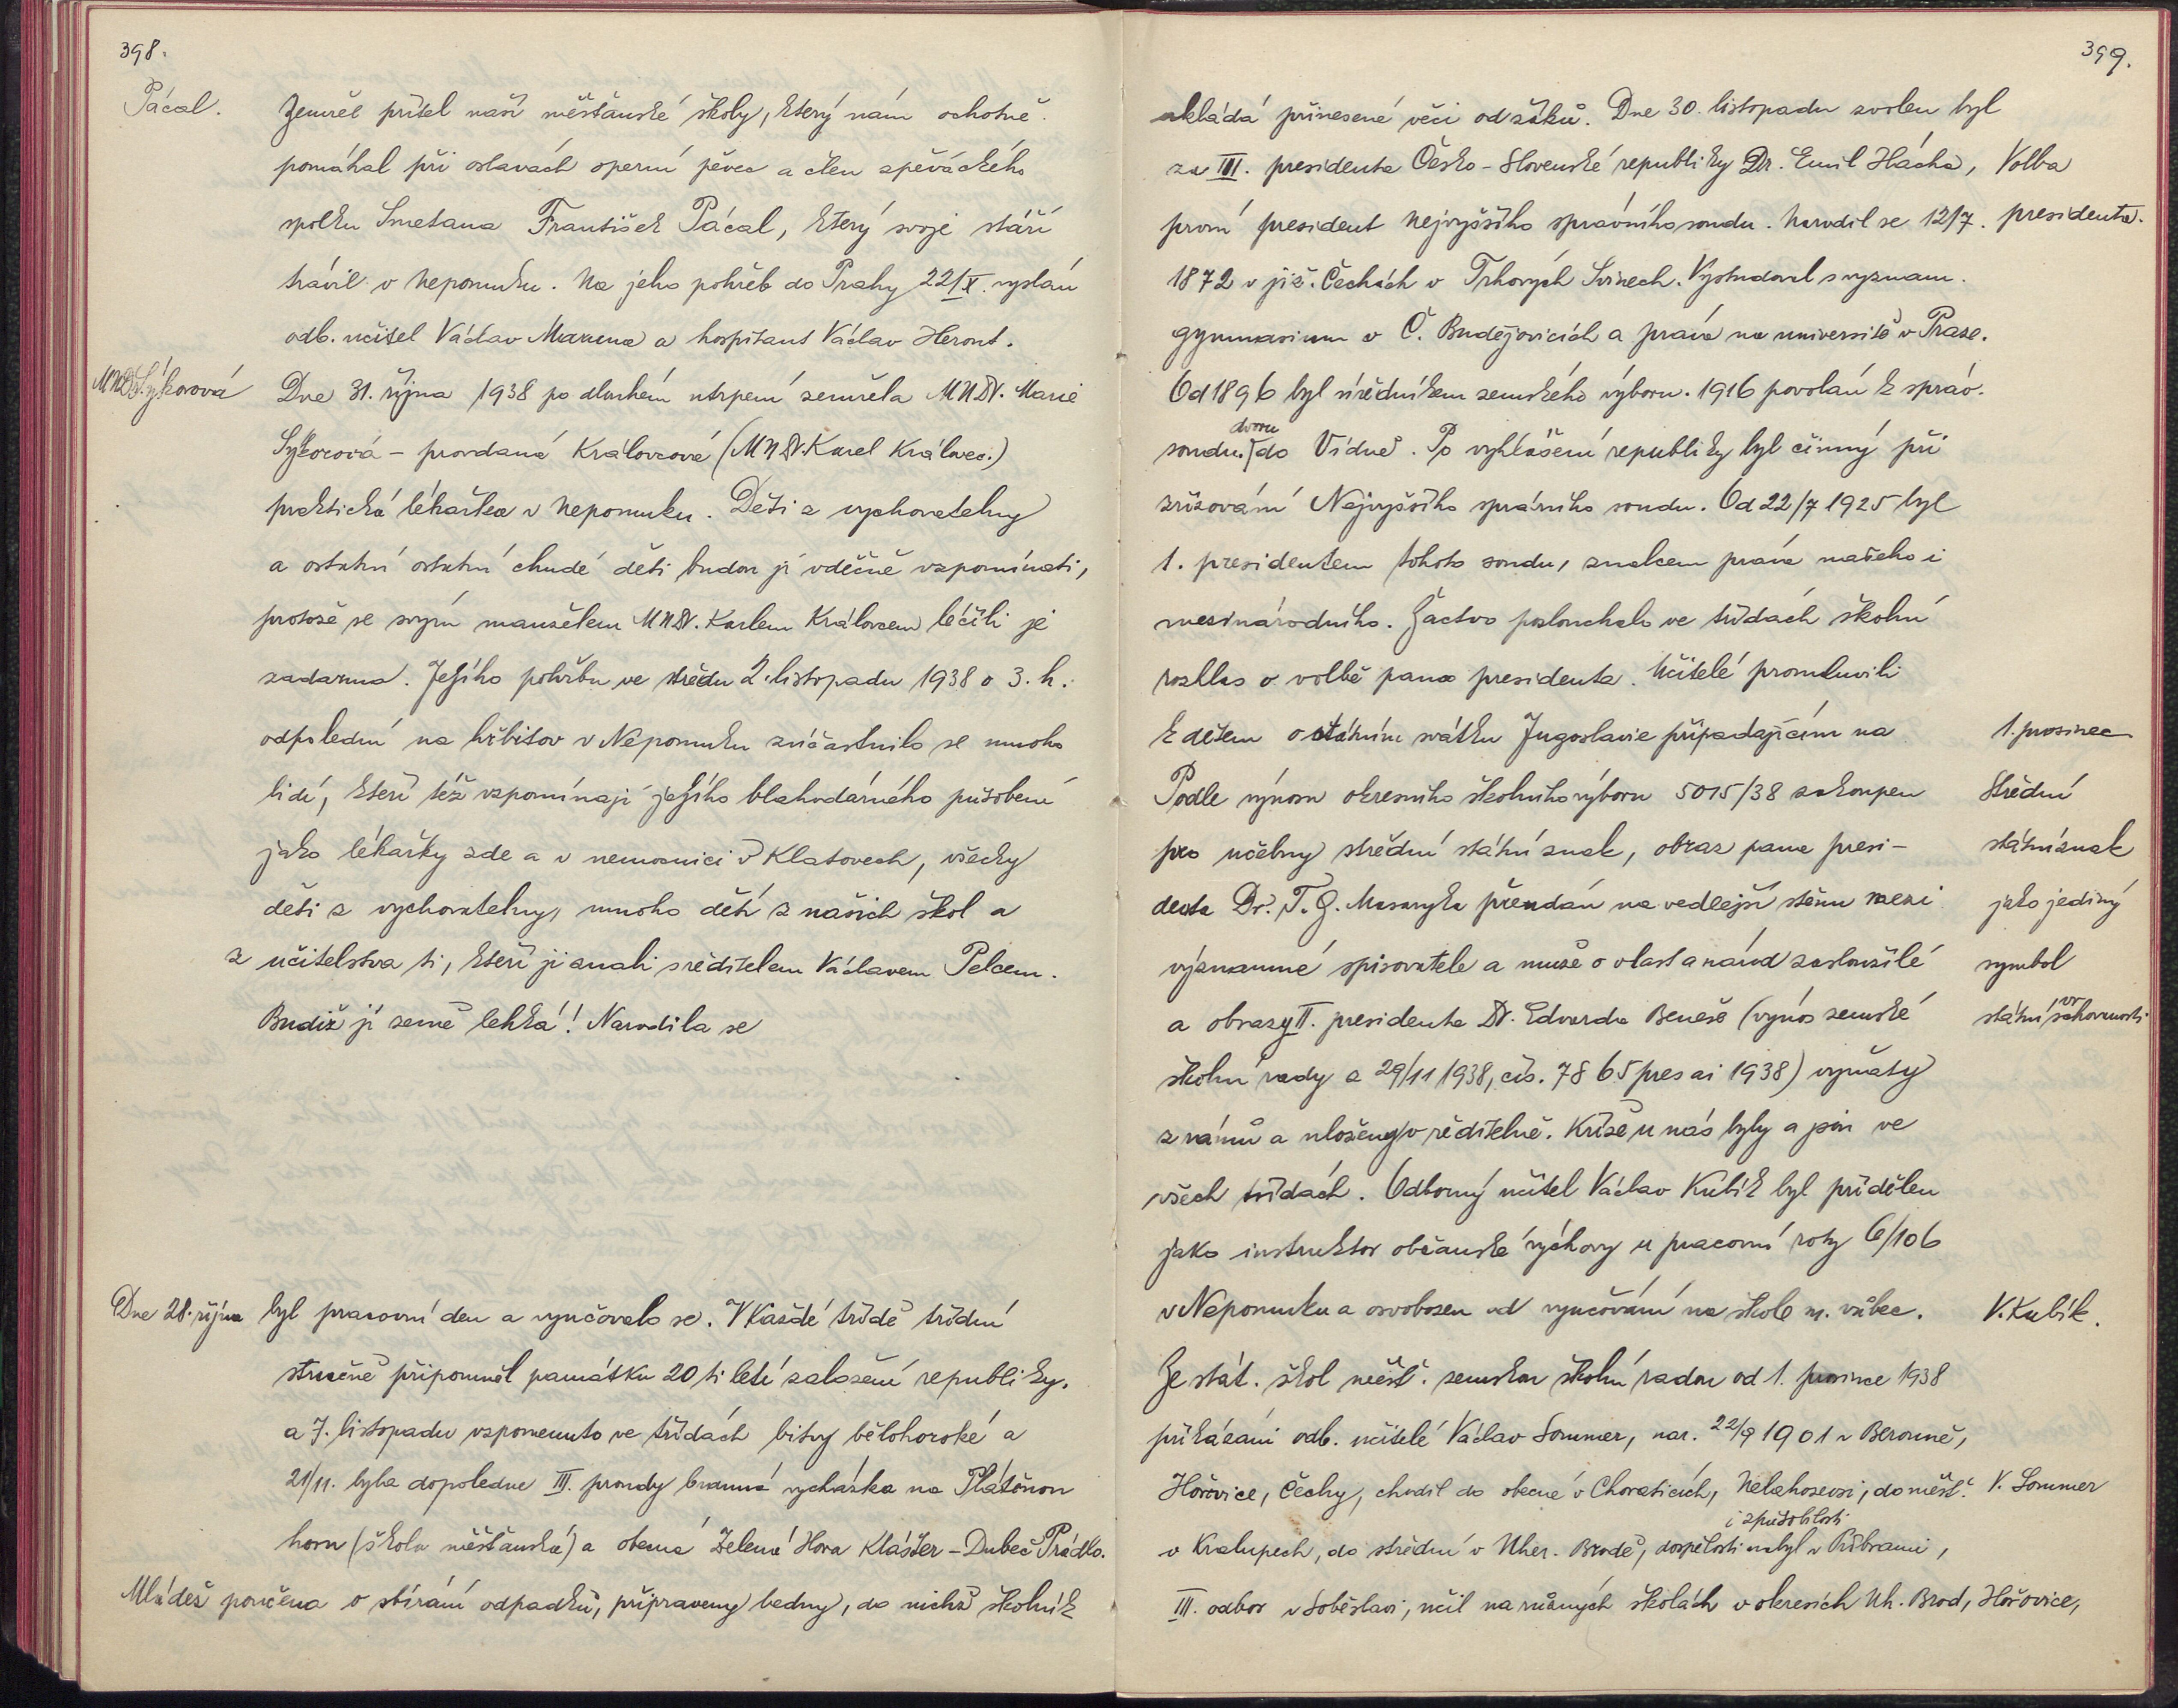 398.
Pácal.
Zemřel přítel naší měšťanské školy, který nám ochotně
pomáhal při oslavách operní pěvec a člen zpěváckého
spolku Smetana František Pácal, který svoje stáří
trávil v Nepomuku. Na jeho pohřeb do Prahy 22/X. vyslán
odb. učitel Václav Mazena a hospitant Václav Heront.
MUDr. Sýkorová
Dne 31. října 1938 po dlouhém utrpení zemřela MUDr. Marie
Sýkorová - provdaná Královcová (MUDr. Karel Královec.)
praktická lékařka v Nepomuku. Děti z vychovatelny
a ostatní ostatní chudé děti budou jí vděčně vzpomínati,
protože se svým manželem MUDr. Karlem Královcem léčili je
zadarmo. Jejího pohřbu ve středu 2. listopadu 1938 o 3. h.
odpolední na hřbitov v Nepomuku zúčastnilo se mnoho
lidí, kteří též vzpomínají jejího blahodárného působení
jako lékařky zde a v nemocnici v Klatovech, všecky
děti z vychovatelny, mnoho dětí z našich škol a
z učitelstva ti, kteří ji znali s ředitelem Václavem Pelcem.
Budiž jí země lehká! Narodila se
Dne 28. října byl pracovní den a vyučovalo se. V každé třídě třídní
stručně připomněl památku 20 ti letí založení republiky.
a 7. listopadu vzpomenuto ve třídách bitvy bělohorské a
21/11. byla dopoledne III. proudy branná vycházka na Plátěnou
horu (škola měšťanská) a obecná Zelená Hora Klášter - Dubeč Prádlo.
Mládež poučena o sbírání odpadků, připraveny bedny, do nichž školník
399.
ukládá přinesené věci od žáků. Dne 30. listopadu zvolen byl
za III. presidenta Česko - Slovenské republiky Dr. Emil Hácha,
Volba
první president Nejvyššího správního soudu. Narodil se 12/7.
presidenta.
1872 v již. Čechách v Trhových Svinech. Vystudoval s vyznam.
gymnasium v Č. Budějovicích a práva na universitě v Praze.
Od 1896 byl úředníkem zemského výboru. 1916 povolán k správ.
dvoru
soudu do Vídně. Po vyhlášení republiky byl činný při
zřizování Nejvyššího správního soudu. Od 22/7 1925 byl
1. presidentem tohoto soudu, znalcem práva našeho i
mezinárodního. Žactvo poslouchalo ve třídách školní
rozhlas o volbě pana presidenta. Učitelé promluvili
k dětem o státním svátku Jugoslavie připadajícím na
1. prosinec
Podle výnosu okresního školního výboru 5015/38 zakoupen
Střední
pro učebny střední státní znak, obraz pana presi-
státní znak
denta Dr. T. G. Masaryka předán na vedlejší stěnu mezi
jako jediný
významné spisovatele a muže o vlast a národ zasloužilé
symbol
a obrazy II. presidenta Dr. Edvarda Beneše (výnos zemské
státní svrchovanosti
školní rady z 29/11 1938, čís. 7865 pres ai 1938) vyňaty
z rámů a uloženy v ředitelně. Kříže u nás byly a jsou ve
všech třídách. Odborný učitel Václav Kubík byl přidělen
jako instruktor občanské výchovy u pracovní roty 6/106
v Nepomuku a osvobozen od vyučování na škole m. vůbec.
V. Kubík.
Ze stát. škol měšť. zemskou školní radou od 1. prosince 1938
přikázáni odb. učitelé Václav Sommer, nar. 22/9 1901 v Berouně,
Hořovice, Čechy, chodil do obecné v Chorati­cích, Nelahozevsi, do měšť.
V. Sommer
i způsobilosti
v Kralupech, do střední v Uher. Brodě, dospělosti nabyl v Příbrami,
III. odbor v Soběslavi, učil na různých školách v okresích Uh. Brod, Hořovice,